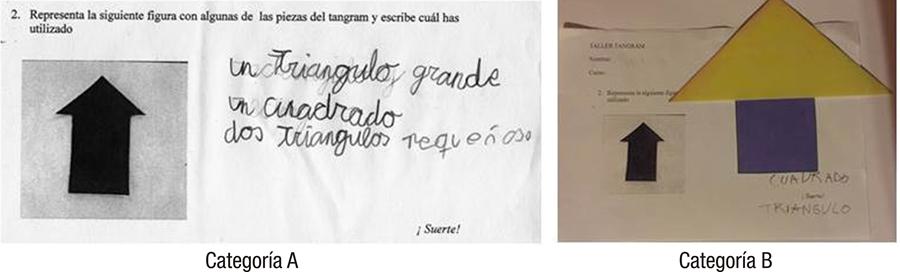 2. Representa la siguiente figura con algunas de las piezas del tangram y escribe cuál has
utilizado
un triangulo grande
un cuadrado
dos triangulos requeñoso
¡ Suerte!
Categoría A
TALLER TANGRAM
Nombre:
Curso:
2. Representa la siguiente
utilizado
CUADRADO
¡ Suerte!
TRIANGULO
Categoría B